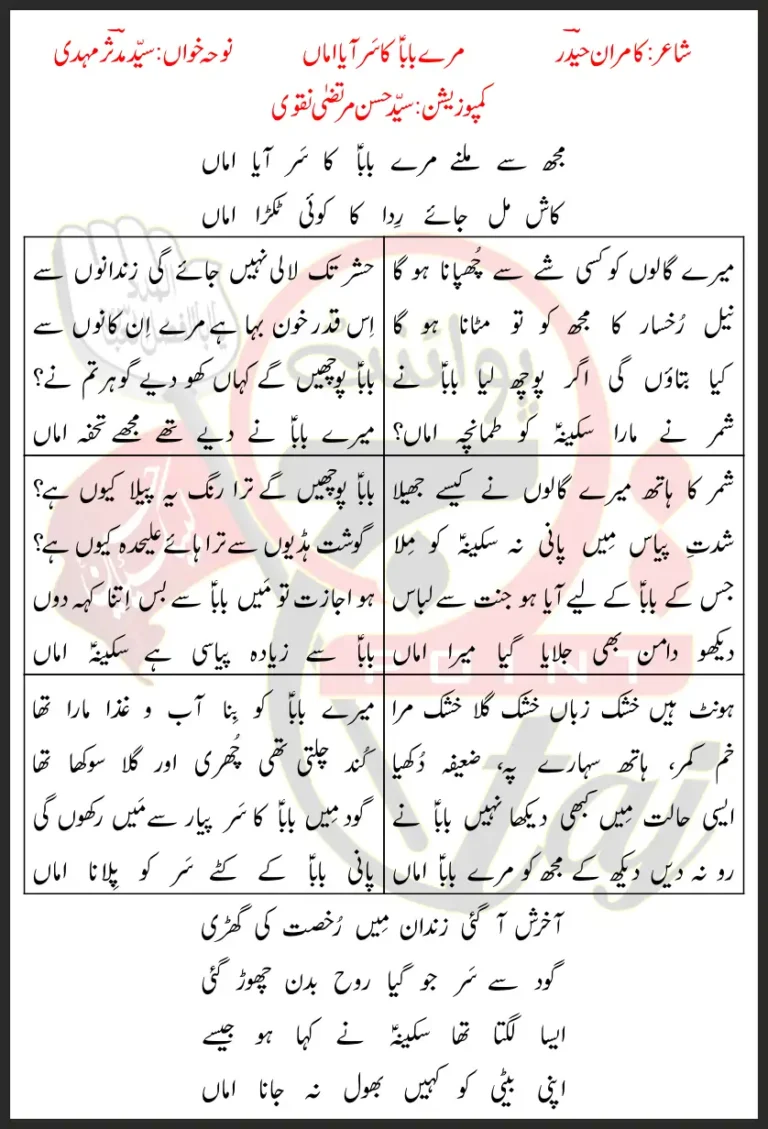 شاعر: کامران حیدر
مرے باباؑ کا سَر آیا اماں
نوحہ خواں: سیّد مدثر مہدی
کمپوزیشن: سیّد حسن مرتضیٰ نقوی
مجھ سے ملنے مرے باباؑ کا سَر آیا اماں
کاش مل جائے رِدا کا کوئی ٹکڑا اماں
میرے گالوں کو کسی شے سے چُھپانا ہو گا
نیل رُخسار کا مجھ کو تو مٹانا ہو گا
کیا بتاؤں گی اگر پوچھ لیا باباؑ نے
شمر نے مارا سکینہؑ کو طمانچہ اماں؟
حشر تک لالی نہیں جائے گی زندانوں سے
اِس قدر خون بہا ہے مرے اِن کانوں سے
باباؑ پوچھیں گے کہاں کھو دیے گوہر تم نے؟
میرے باباؑ نے دیے تھے مجھے تحفہ اماں
شمر کا ہاتھ میرے گالوں نے کیسے جھیلا
شدتِ پیاس مِیں پانی نہ سکینہؑ کو مِلا
جس کے باباؑ کے لیے آیا ہو جنت سے لباس
دیکھو دامن بھی جلایا گیا میرا اماں
باباؑ پوچھیں گے ترا رنگ یہ پیلا کیوں ہے؟
گوشت ہڈیوں سے ترا ہائے علیحدہ کیوں ہے؟
ہو اجازت تو مَیں باباؑ سے بس اِتنا کہہ دوں
باباؑ سے زیادہ پیاسی ہے سکینہؑ اماں
ہونٹ ہیں خشک زباں خشک گلا خشک مرا
خم کمر، ہاتھ سہارے پہ، ضعیفہ دُکھیا
ایسی حالت مِیں کبھی دیکھا نہیں باباؑ نے
رو نہ دیں دیکھ کے مجھ کو مرے باباؑ اماں
میرے باباؑ کو بِنا آب و غذا مارا تھا
کُند چلتی تھی چُھری اور گلا سوکھا تھا
گود مِیں باباؑ کا سَر پیار سے مَیں رکھوں گی
پانی باباؑ کے کٹے سَر کو پِلانا اماں
آخرش آ گئی زندان مِیں رُخصت کی گھڑی
گود سے سَر جو گیا روح بدن چھوڑ گئی
ایسا لگتا تھا سکینہؑ نے کہا ہو جیسے
اپنی بیٹی کو کہیں بھول نہ جانا اماں
پوائنٹ
POINT
taj